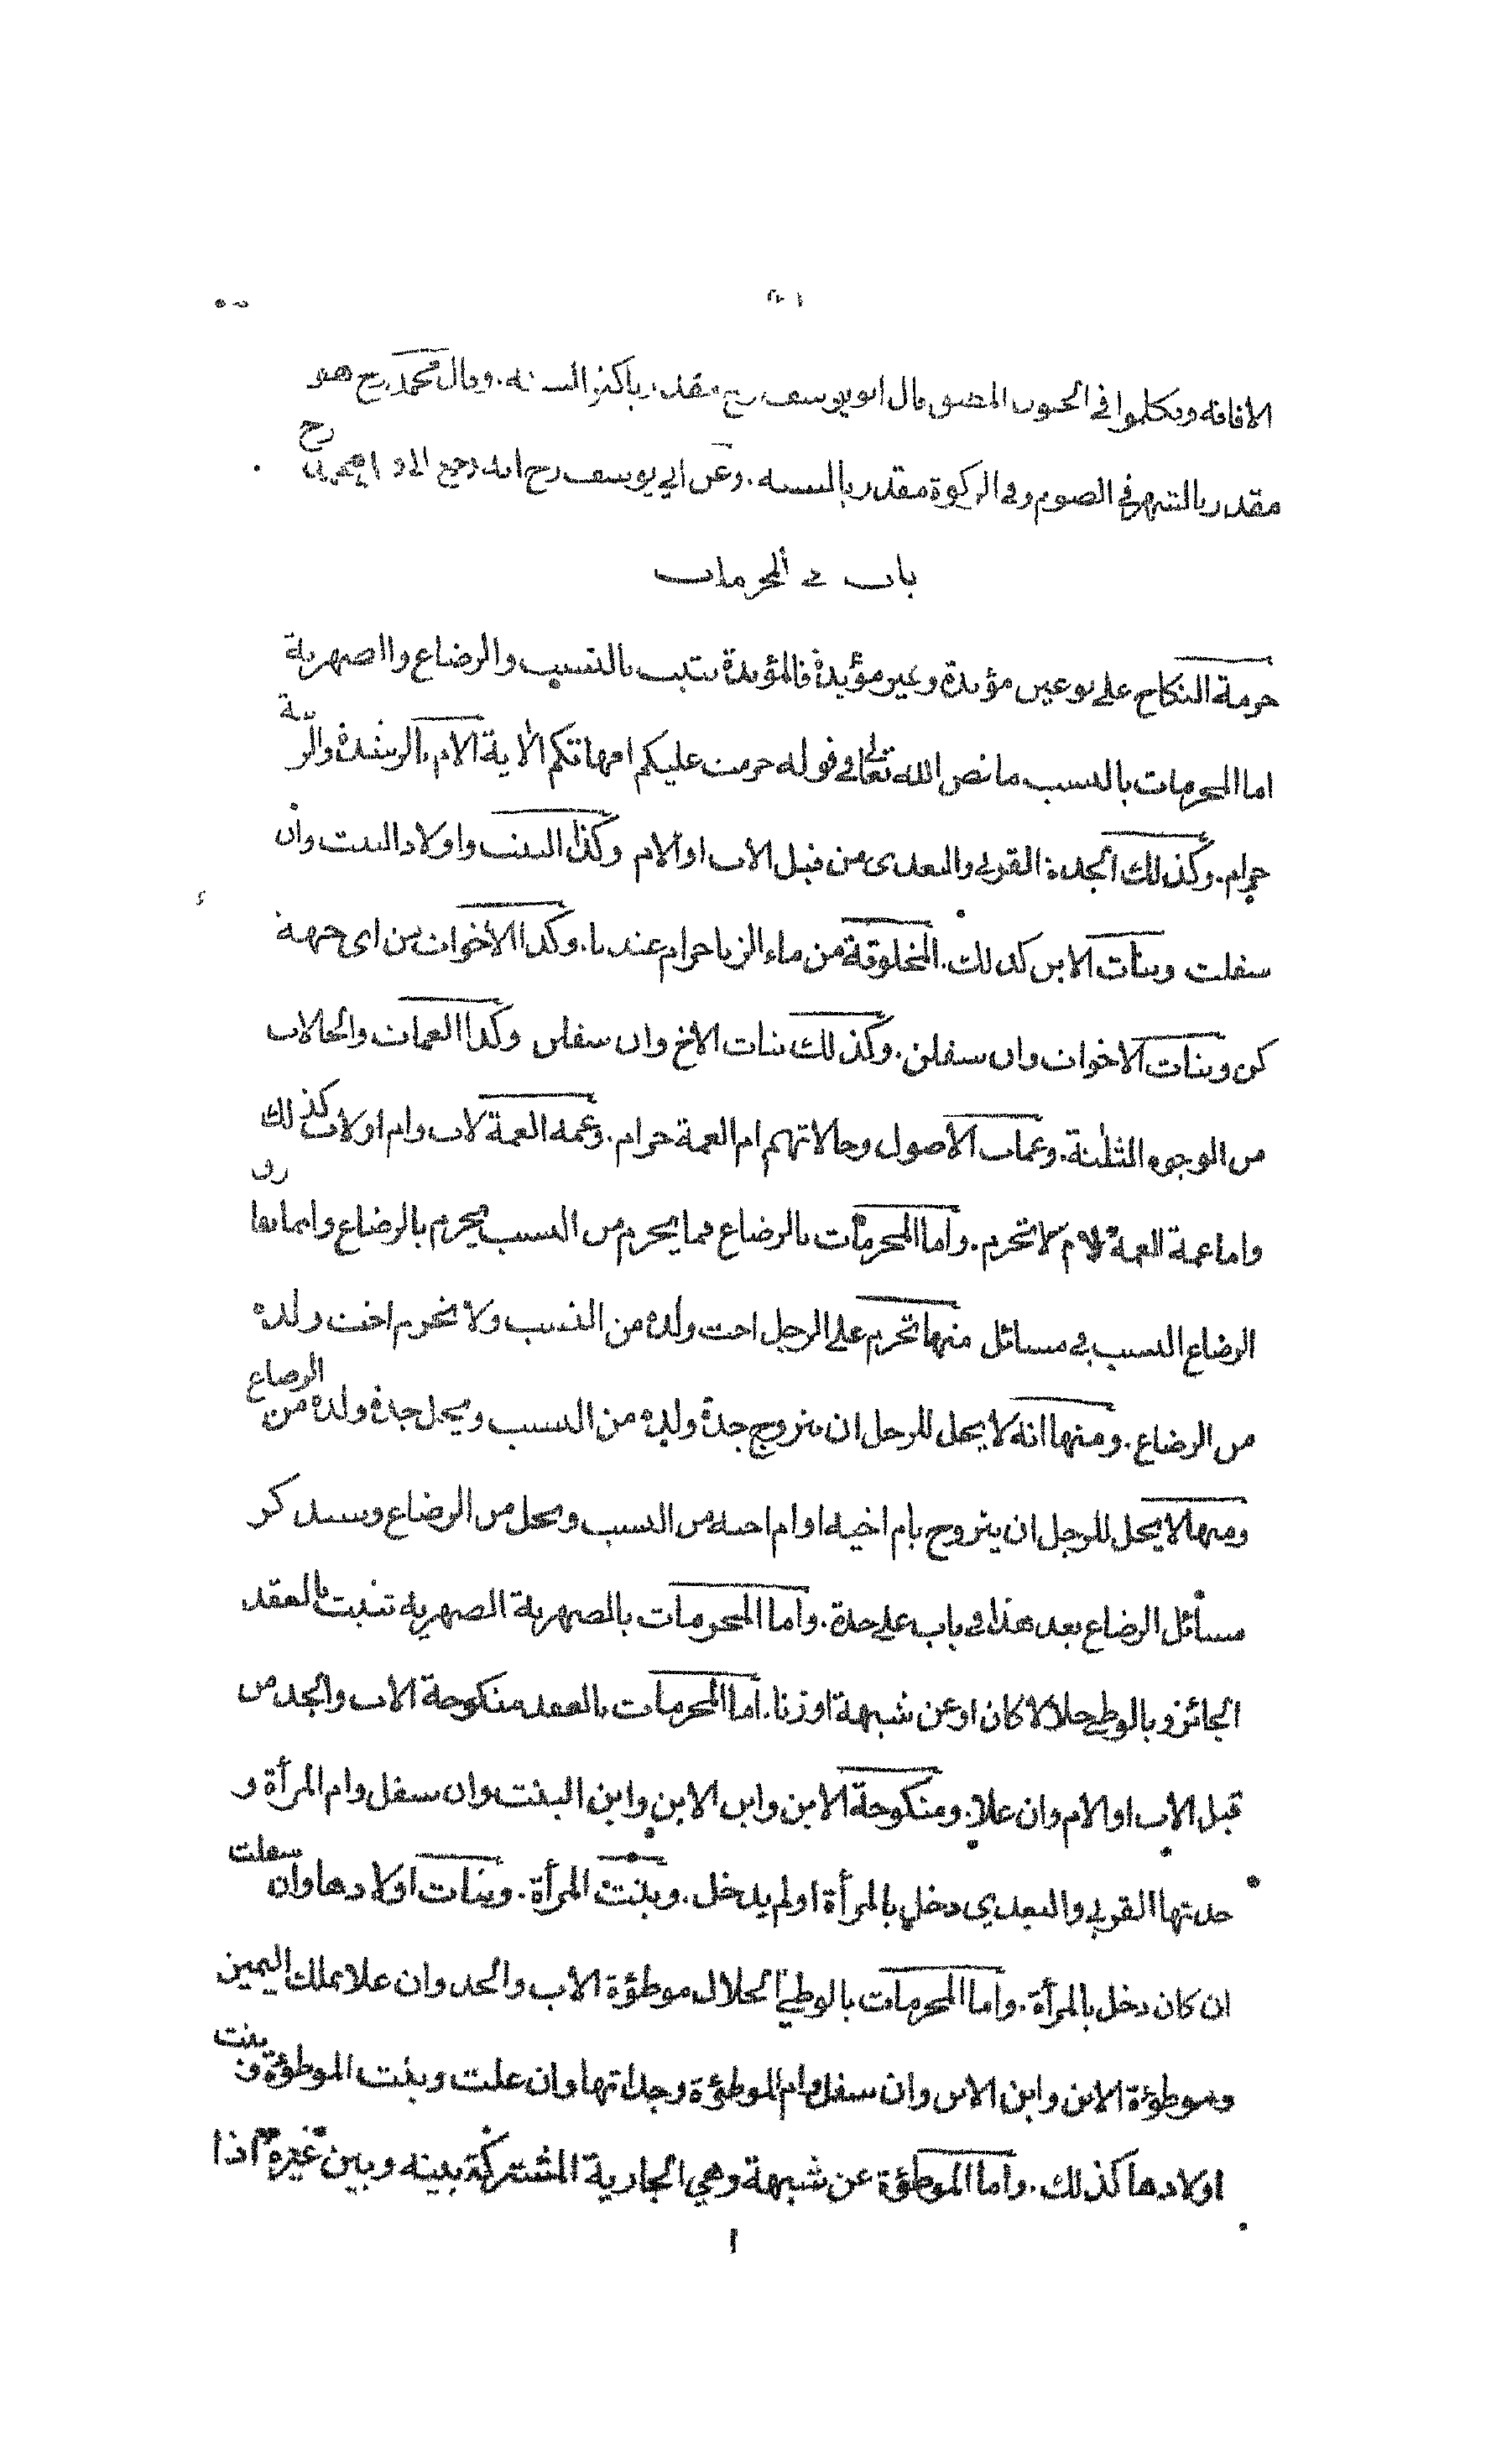 الافاقة وتكلموا في الجنون المطبق قال ابو يوسف رح مقدر باكثر السنة. وقال محمد رح هو
مقدر بالشهر في الصوم وفي الزكوة مقدر بالسنة. وعن ابي يوسف رح انه رجع الى محمد رح
باب في المحرمات
حرمة النكاح على نوعين مؤبدة وغير مؤبدة فالمؤبدة تثبت بالنسب والرضاع والصهرية
اما المحرمات بالنسب ما نص الله تعالى في قوله حرمت عليكم امهاتكم الاية الام الرشدة والزنية
حرام. وكذلك الجدة القربى والبعدى من قبل الاب او الام وكذا البنت واولاد البنت وان
سفلت وبنات الابن كذلك. المخلوقة من ماء الزنا حرام عندنا. وكذا الاخوات من اى جهة
كن وبنات الاخوات وان سفلن. وكذلك بنات الاخ وان سفلن وكذا العمات والخالات
من الوجوه الثلثة. وعمات الاصول وخالاتهم ام العمة حرام. وعمة العمة لاب وام او لاب كذلك
واما عمة العمة لام لا تحرم. واما المحرمات بالرضاع فما يحرم من النسب يحرم بالرضاع وانما يفارق
الرضاع النسب في مسائل منها تحريم على الرجل اخت ولده من النسب ولا تحرم اخت ولده
من الرضاع. ومنها انه لا يحل للرجل ان يتزوج جدة ولده من النسب ويحل جدة ولده من الرضاع
ومنها لا يحل للرجل ان يتزوج بام اخيه او ام اخته من النسب ويحل من الرضاع وسنذكر
مسائل الرضاع بعد هذا في باب على حدة. واما المحرمات بالصهرية الصهرية تثبت بالعقد
الجائز وبالوطي حلالا كان او عن شبهة او زنا. اما المحرمات بالعقد منكوحة الاب والجد من
قبل الاب او الام وان علا. ومنكوحة الابن وابن الابن وابن البنت وان سفل وام المرأة و
جدتها القربى والبعدي دخل بالمرأة او لم يدخل. وبنت المرأة. وبنات اولادها وان سفلت
ان كان دخل بالمرأة. واما المحرمات بالوطي الحلال موطؤة الاب والجد وان علا بملك اليمين
وموطؤة الابن وابن الابن وان سفل وام الموطؤة وجداتها وان علت وبنت الموطؤة و بنت
اولادها كذلك. واما الموطؤة عن شبهة وهي الجارية المشتركة بينه وبين غيره اذا